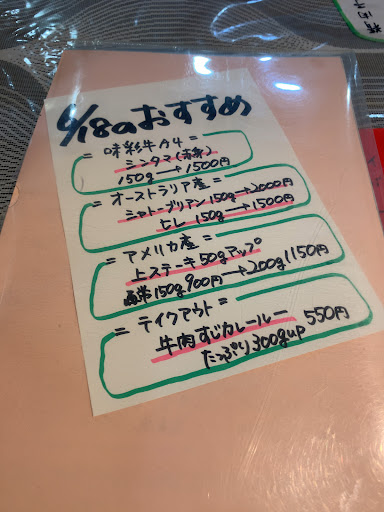 6/18のおすすめ
= 味彩牛A4 =
シンタマ(赤身)
150g→1500円
= オーストラリア産 =
シャトーブリアン150g→2000円
ヒレ 150g→1500円
= アメリカ産 =
上ステーキ50gアップ
通常150g900円→200g1150円
= テイクアウト =
牛肉すじカレールー 550円
たっぷり300gup